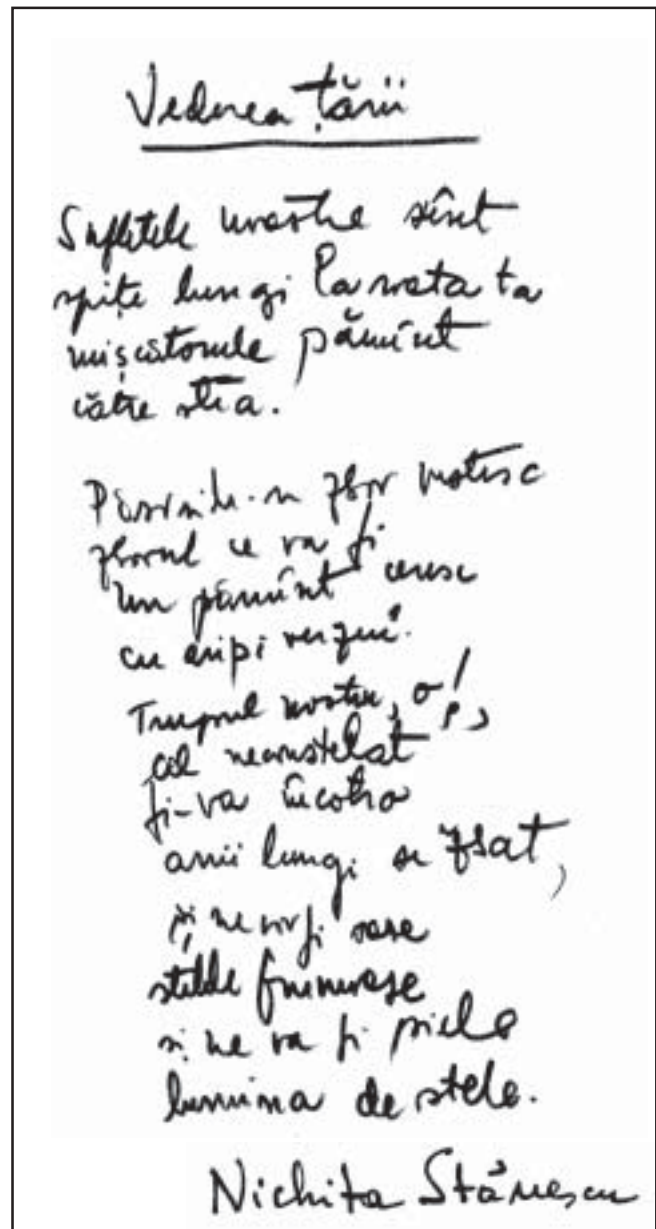 Vederea țării
Sufletele noastre sînt
spițe lungi la roata ta
mișcătorule pămînt
către stea.
Păsările-n zbor rotesc
zborul ce va fi
un pămînt ceresc
cu aripi verzui.
Trupul nostru, o!,
cel neconstelat
fi-va încotro
anii lungi se zbat,
și ne vor fi oase
stelele frumoase
și ne va fi piele
lumina de stele.
Nichita Stănescu